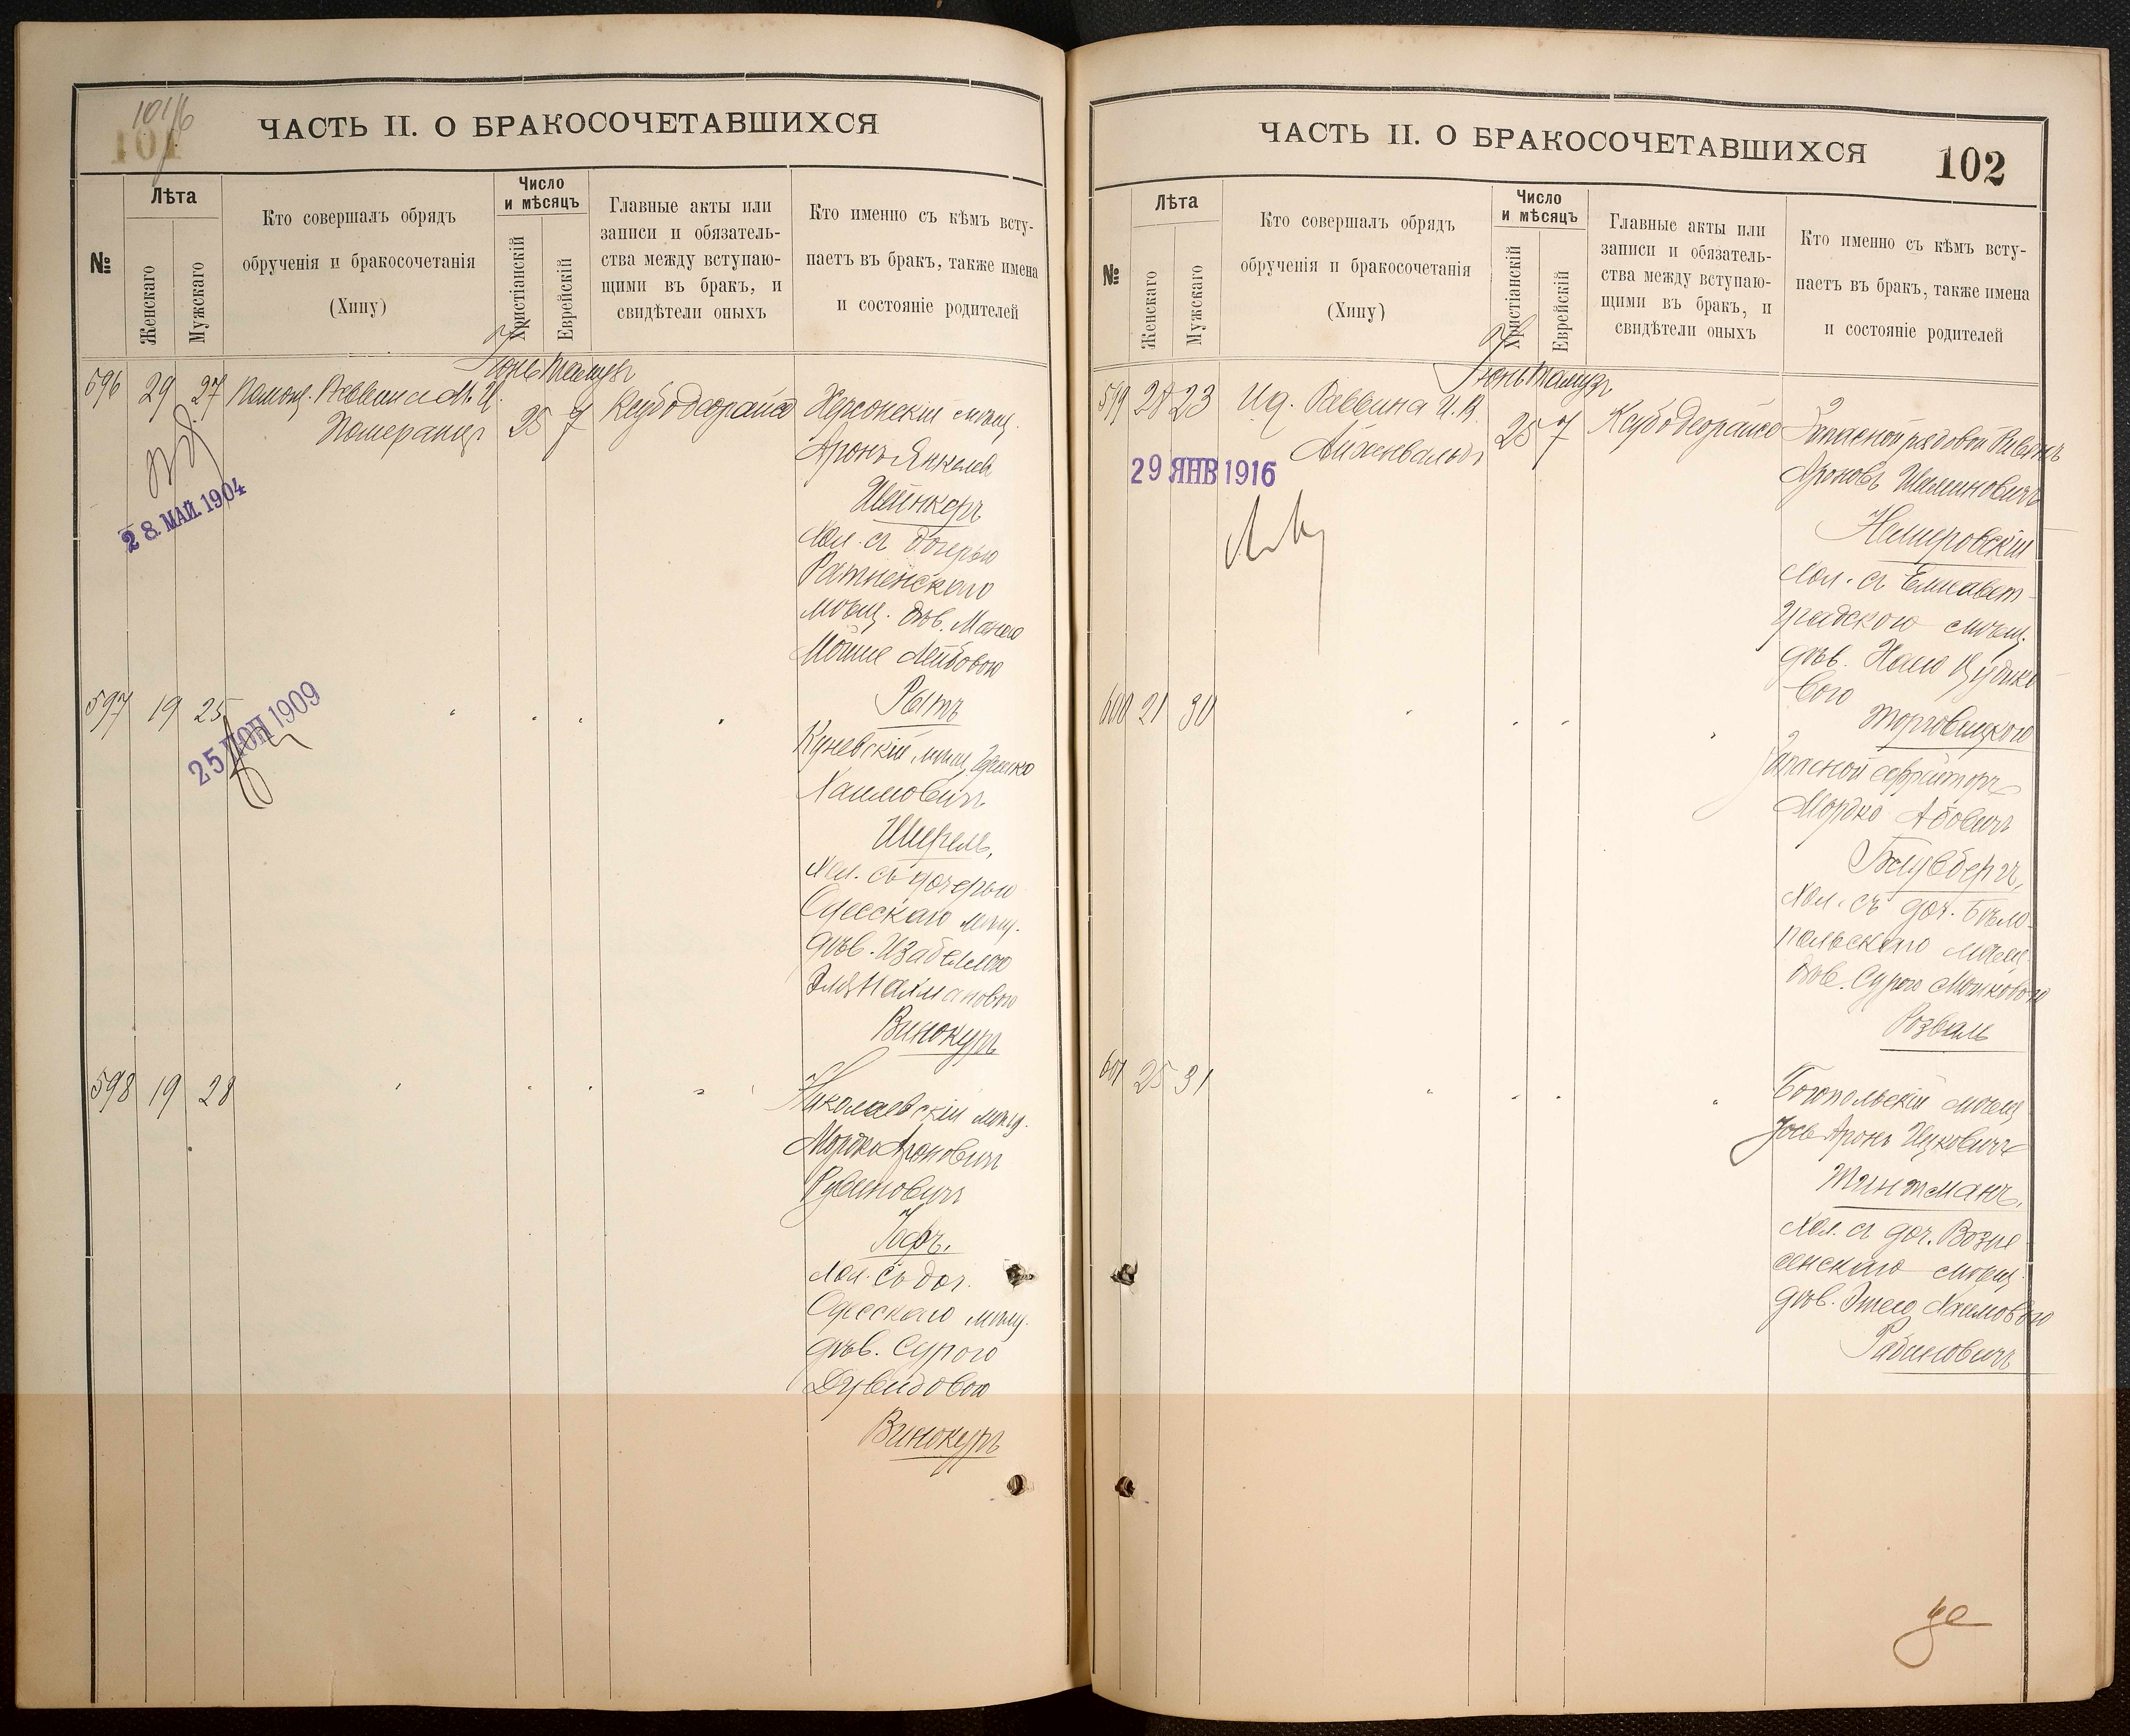 101/б
101
ЧАСТЬ II. О БРАКОСОЧЕТАВШИХСЯ
№
Лѣта
Женскаго
Мужскаго
Кто совершалъ обрядъ
обрученія и бракосочетанія
(Хипу)
Число
и мѣсяцъ
Христіанскій
Еврейскій
Главные акты или
записи и обязатель-
ства между вступаю-
щими въ бракъ, и
свидѣтели оныхъ
Кто именно съ кѣмъ всту-
паетъ въ бракъ, также имена
и состояніе родителей
Іюнь Тамузъ
596 29 27 Помощ. Раввина М. И.
Померанцъ 25 7
Херсонскій мѣщ.
Аронъ Янкелев
Шейнкеръ
Хол. съ дочерью
Ратненскаго
мѣщ. дѣв. Манею
Мошие Лейбовою
Рытъ
28. МАЙ. 1904
597 19 25
25 1909
Куневскій мѣщ.
Хаимовичъ
Шперель,
Хол. съ дочерью
Одесскаго мѣщ.
дѣв. Изабеллою
Элянахмановою
Винокуръ
598 19 28
Николаевскій мѣщ.
Мордко Ароновичъ
Рувиновичъ
Гофъ,
Хол. съ доч.
Одесскаго мѣщ.
дѣв. Сурою
Дувидовою
Винокуръ
ЧАСТЬ II. О БРАКОСОЧЕТАВШИХСЯ
102
№
Лѣта
Женскаго
Мужскаго
Кто совершалъ обрядъ
обрученія и бракосочетанія
(Хипу)
Число
и мѣсяцъ
Христіанскій
Еврейскій
Главные акты или
записи и обязатель-
ства между вступаю-
щими въ бракъ, и
свидѣтели оныхъ
Кто именно съ кѣмъ всту-
паетъ въ бракъ, также имена
и состояніе родителей
Іюнь Тамузъ
599 28 23 Раввина
Айхенвальдъ 25 7
29 ЯНВ 1916
Запасной рядовой
Ароновъ Шлиомовичъ
Немировскій
Хол. съ Елисавет-
градскою мѣщ.
дѣв.
вою
Торговицкою
600 21 30
Запасной ефрейторъ
Мордко Абовичъ
Хол. съ доч. Бѣло-
польскаго мѣщ.
дѣв. Сурою Мошковою
Розваль
601 25 31
Богопольскій мѣщ.
Іось Аронъ Ицковичъ
Тинтманъ,
Хол. съ доч. Возне-
сенскаго мѣщ.
дѣв. Этею Хаимовою
Рабиновичъ